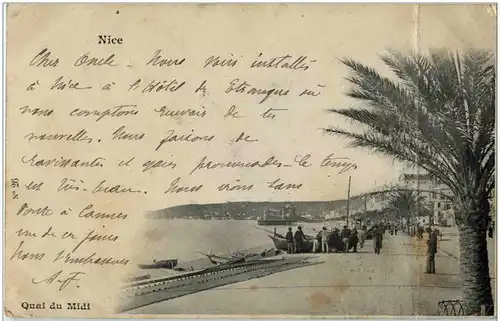 Nice
Cher Oncle - Nous voici installés
à Nice à l'Hôtel des Etrangers où
nous comptons recevoir de tes
nouvelles. Nous faisons de
ravissantes et gaies promenades - le temps
est très-beau. Nous irons sans
doute à Cannes
un de ces jours
Nous t'embrassons
A. F.
No 26
Quai du Midi